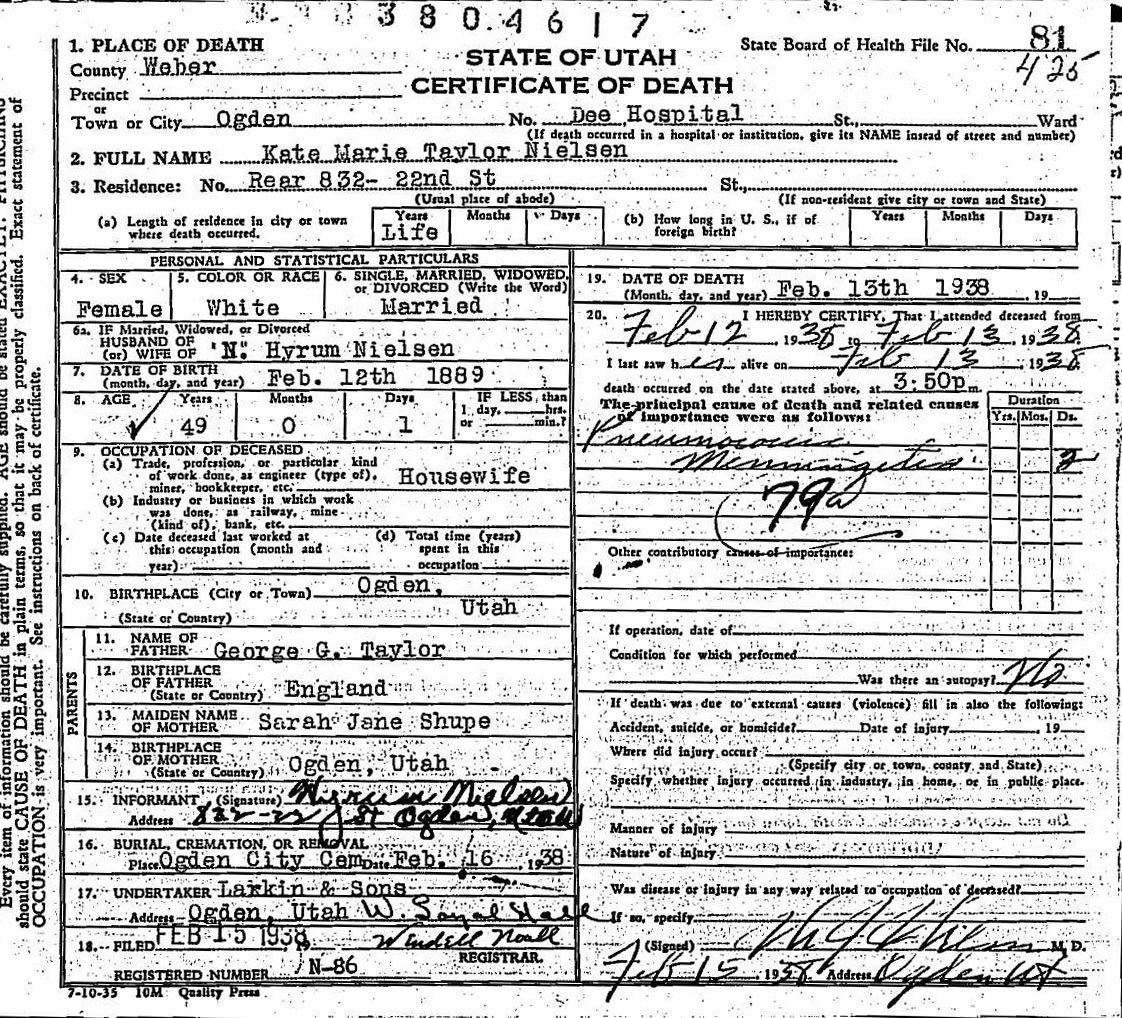 3 8 0 4 6 1 7
1. PLACE OF DEATH
County Weber
Precinct
or
Town or City Ogden No. Dee Hospital St., Ward
(If death occurred in a hospital or institution, give its NAME insead of street and number)
STATE OF UTAH
CERTIFICATE OF DEATH
State Board of Health File No. 81
425
2. FULL NAME Kate Marie Taylor Nielsen
3. Residence: No. Rear 832- 22nd St St.,
(Usual place of abode) (If non-resident give city or town and State)
(a) Length of residence in city or town where death occurred. Years Life Months Days
(b) How long in U. S., if of foreign birth? Years Months Days
PERSONAL AND STATISTICAL PARTICULARS
4. SEX Female
5. COLOR OR RACE White
6. SINGLE, MARRIED, WIDOWED, or DIVORCED (Write the Word) Married
6a. IF Married, Widowed, or Divorced
HUSBAND OF
(or) WIFE OF "N." Hyrum Nielsen
7. DATE OF BIRTH
(month, day, and year) Feb. 12th 1889
8. AGE Years 49 Months 0 Days 1 IF LESS than 1 day, hrs. or min.?
9. OCCUPATION OF DECEASED
(a) Trade, profession, or particular kind of work done, as engineer (type of), miner, bookkeeper, etc. Housewife
(b) Industry or business in which work was done, as railway, mine (kind of), bank, etc.
(c) Date deceased last worked at this occupation (month and year)
(d) Total time (years) spent in this occupation
10. BIRTHPLACE (City or Town) Ogden,
(State or Country) Utah
PARENTS
11. NAME OF FATHER George G. Taylor
12. BIRTHPLACE OF FATHER
(State or Country) England
13. MAIDEN NAME OF MOTHER Sarah Jane Shupe
14. BIRTHPLACE OF MOTHER
(State or Country) Ogden, Utah
15. INFORMANT (Signature) Hyrum Nielsen
Address 832-22 St Ogden, Utah
16. BURIAL, CREMATION, OR REMOVAL
Place Ogden City Cem Date Feb. 16, 1938
17. UNDERTAKER Larkin & Sons
Address Ogden, Utah W.
18. FILED FEB 15 1938 Wendell Noall
REGISTRAR.
REGISTERED NUMBER N-86
7-10-35 10M Quality Press
19. DATE OF DEATH
(Month, day, and year) Feb. 13th 1938, 19
20. I HEREBY CERTIFY, That I attended deceased from
Feb 12 1938 to Feb 13 1938
I last saw her alive on Feb 13 1938
death occurred on the date stated above, at 3:50p m.
The principal cause of death and related causes of importance were as follows:
Duration
Yrs. Mos. Ds.
Menningetis 2
79a
Other contributory causes of importance:
If operation, date of
Condition for which performed
Was there an autopsy? No
If death was due to external causes (violence) fill in also the following:
Accident, suicide, or homicide? Date of injury , 19
Where did injury occur?
(Specify city or town, county and State)
Specify whether injury occurred in industry, in home, or in public place.
Manner of injury
Nature of injury
Was disease or injury in any way related to occupation of deceased?
If so, specify
(Signed) M. D.
Feb 15 1938 Address Ogden Ut
Every item of information should be carefully supplied. AGE should be stated EXACTLY. PHYSICIANS
should state CAUSE OF DEATH in plain terms, so that it may be properly classified. Exact statement of
OCCUPATION is very important. See instructions on back of certificate.